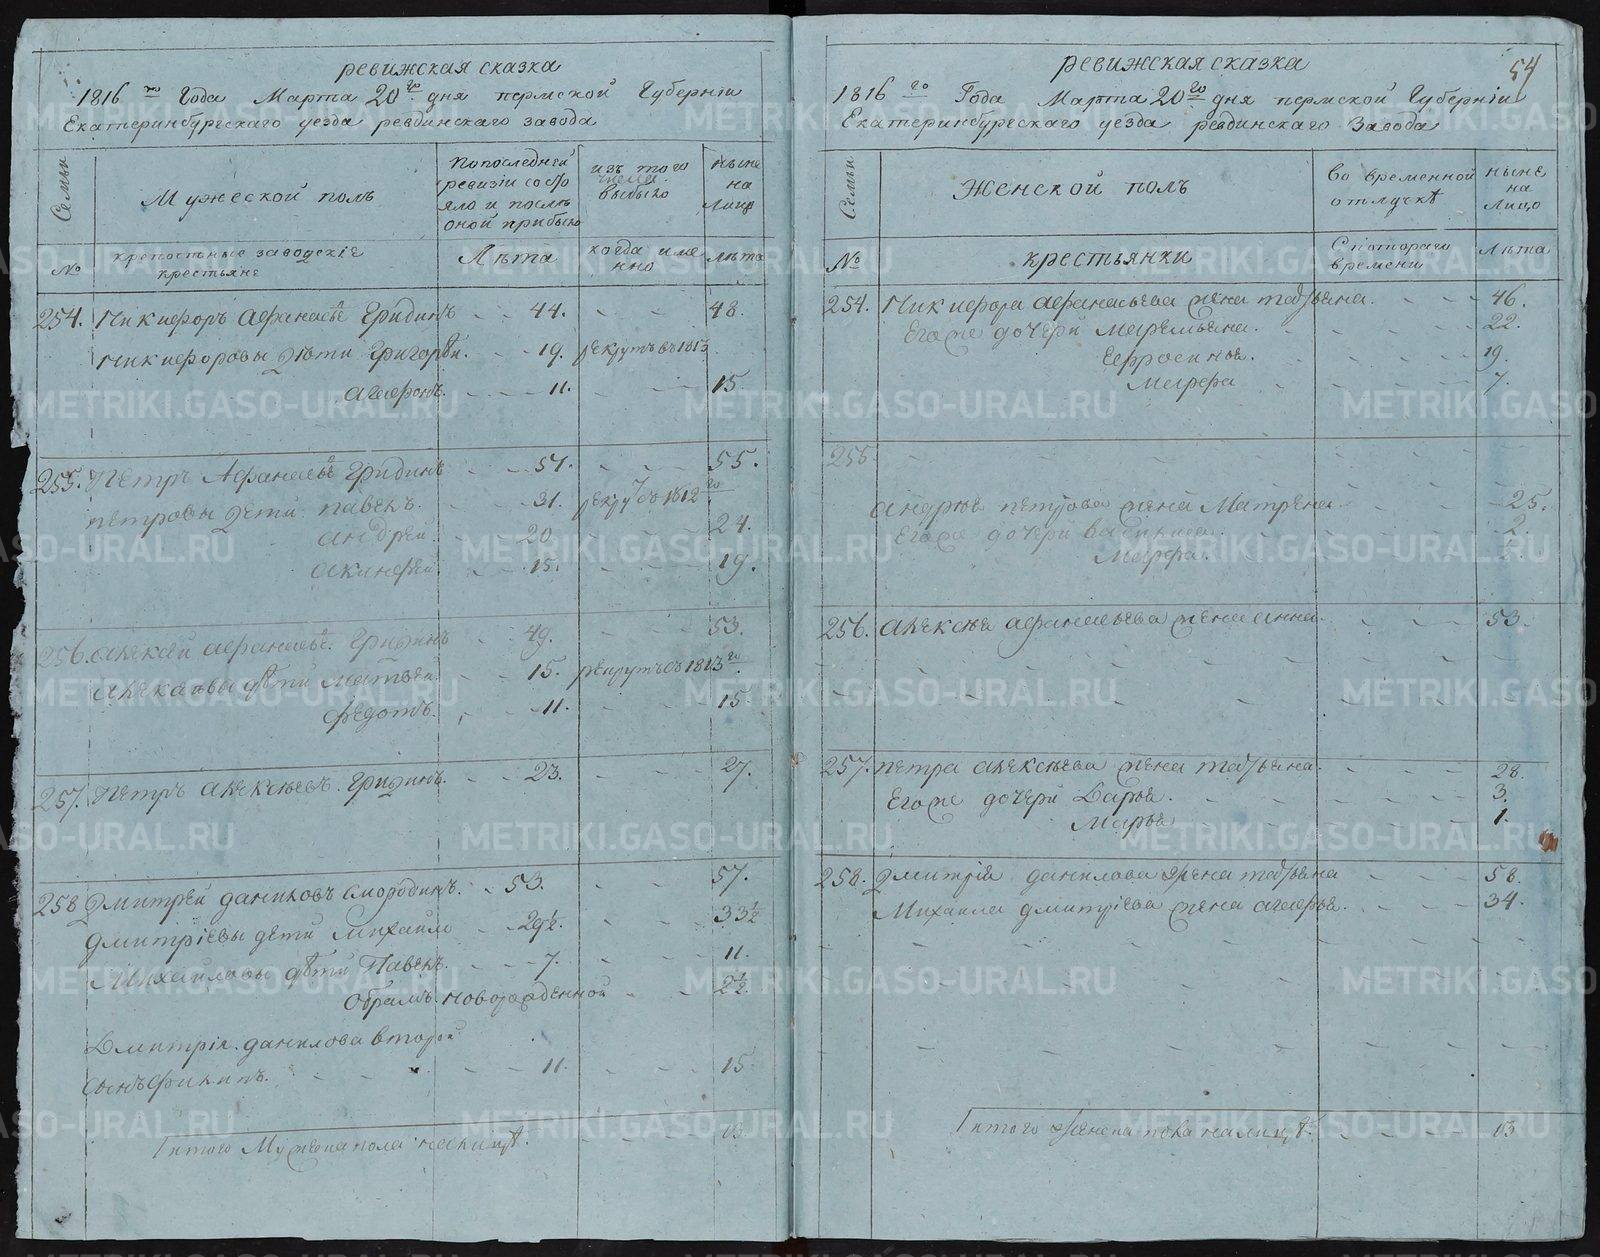 ревижская сказка
1816 го Года Марта 20 го дня пермской Губерніи
Екатеринбургскаго уезда ревдинскаго завода
Семьи
Мужеской полъ
по последней ревизіи состояло и после оной прибыло
изъ того числа выбыло
ныне на лицо
№
крепостные заводскіе крестьяне
Лѣта
когда именно
лѣта
254. Никифоръ Афанасьевъ Гридинъ 44. 48.
Никифоровы дѣти Григорей. 19. рекрутъ въ 1813
агафонъ. 11. 15.
255. Петръ Афанасьевъ Гридинъ 51. 55.
петровы дети павелъ. 31. рекрутъ въ 1812 го
андрей. 20 24.
акинфей. 15. 19.
256. алексей афанасьевъ Гридинъ 49. 53.
алексеевы дѣти матвей. 15. рекрутъ въ 1813 го
федотъ. 11. 15.
257. Петръ алексѣевъ Гридинъ. 23. 27.
258 Дмитрей даниловъ Смородинъ. 53. 57.
дмитріевы дети михайло 29½. 33½
Михайловы дѣти Павелъ. 7. 11.
Обрамъ новорожденной 2½.
Дмитрія данилова второй
сынъ филипъ. 11. 15.
Итого Мужеска пола налицѣ 13.
54
ревижская сказка
1816 го Года Марта 20 го дня пермской Губерніи
Екатеринбургскаго уезда ревдинскаго Завода
Семьи
Женской полъ
во временной отлучкѣ
ныне на лицо
№
крестьянки
С котораго времени
Лѣта
254. Никифора афанасьева жена татьяна. 46.
Егоже дочери маремьяна. 22.
Ефросинья. 19.
Марфа 7.
255.
андрѣя петрова жена Матрена 25.
Егоже дочери василиса. 2.
Марфа.
256. алексѣя афанасьева жена анна. 53.
257. петра алексѣева жена татьяна. 28.
Егоже дочери Дарья. 3.
Марья 1.
258. дмитрія данилова жена татьяна 58.
Михаила дмитріева жена агафья. 34.
Итого Женска пола налицѣ. 13
METRIKI.GASO-URAL.RU